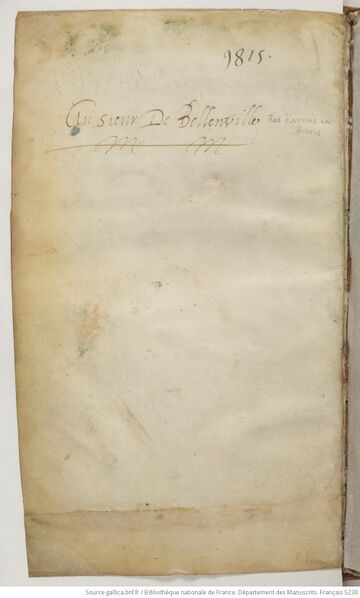 9815.
Au sieur De Bellenville Roi d'armes en
Artois
Source gallica.bnf.fr / Bibliothèque nationale de France. Département des Manuscrits. Français 5230